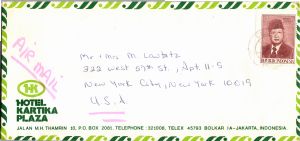 Mr + Mrs M Lewitz
322 West 57th St, Apt 11-S
New York City, New York 10019
U.S.A
AIR MAIL
HK
HOTEL
KARTIKA
PLAZA
JALAN M.H. THAMRIN 10, P.O. BOX 2081, TELEPHONE : 321008, TELEX 45793 BOLKAR IA-JAKARTA, INDONESIA.